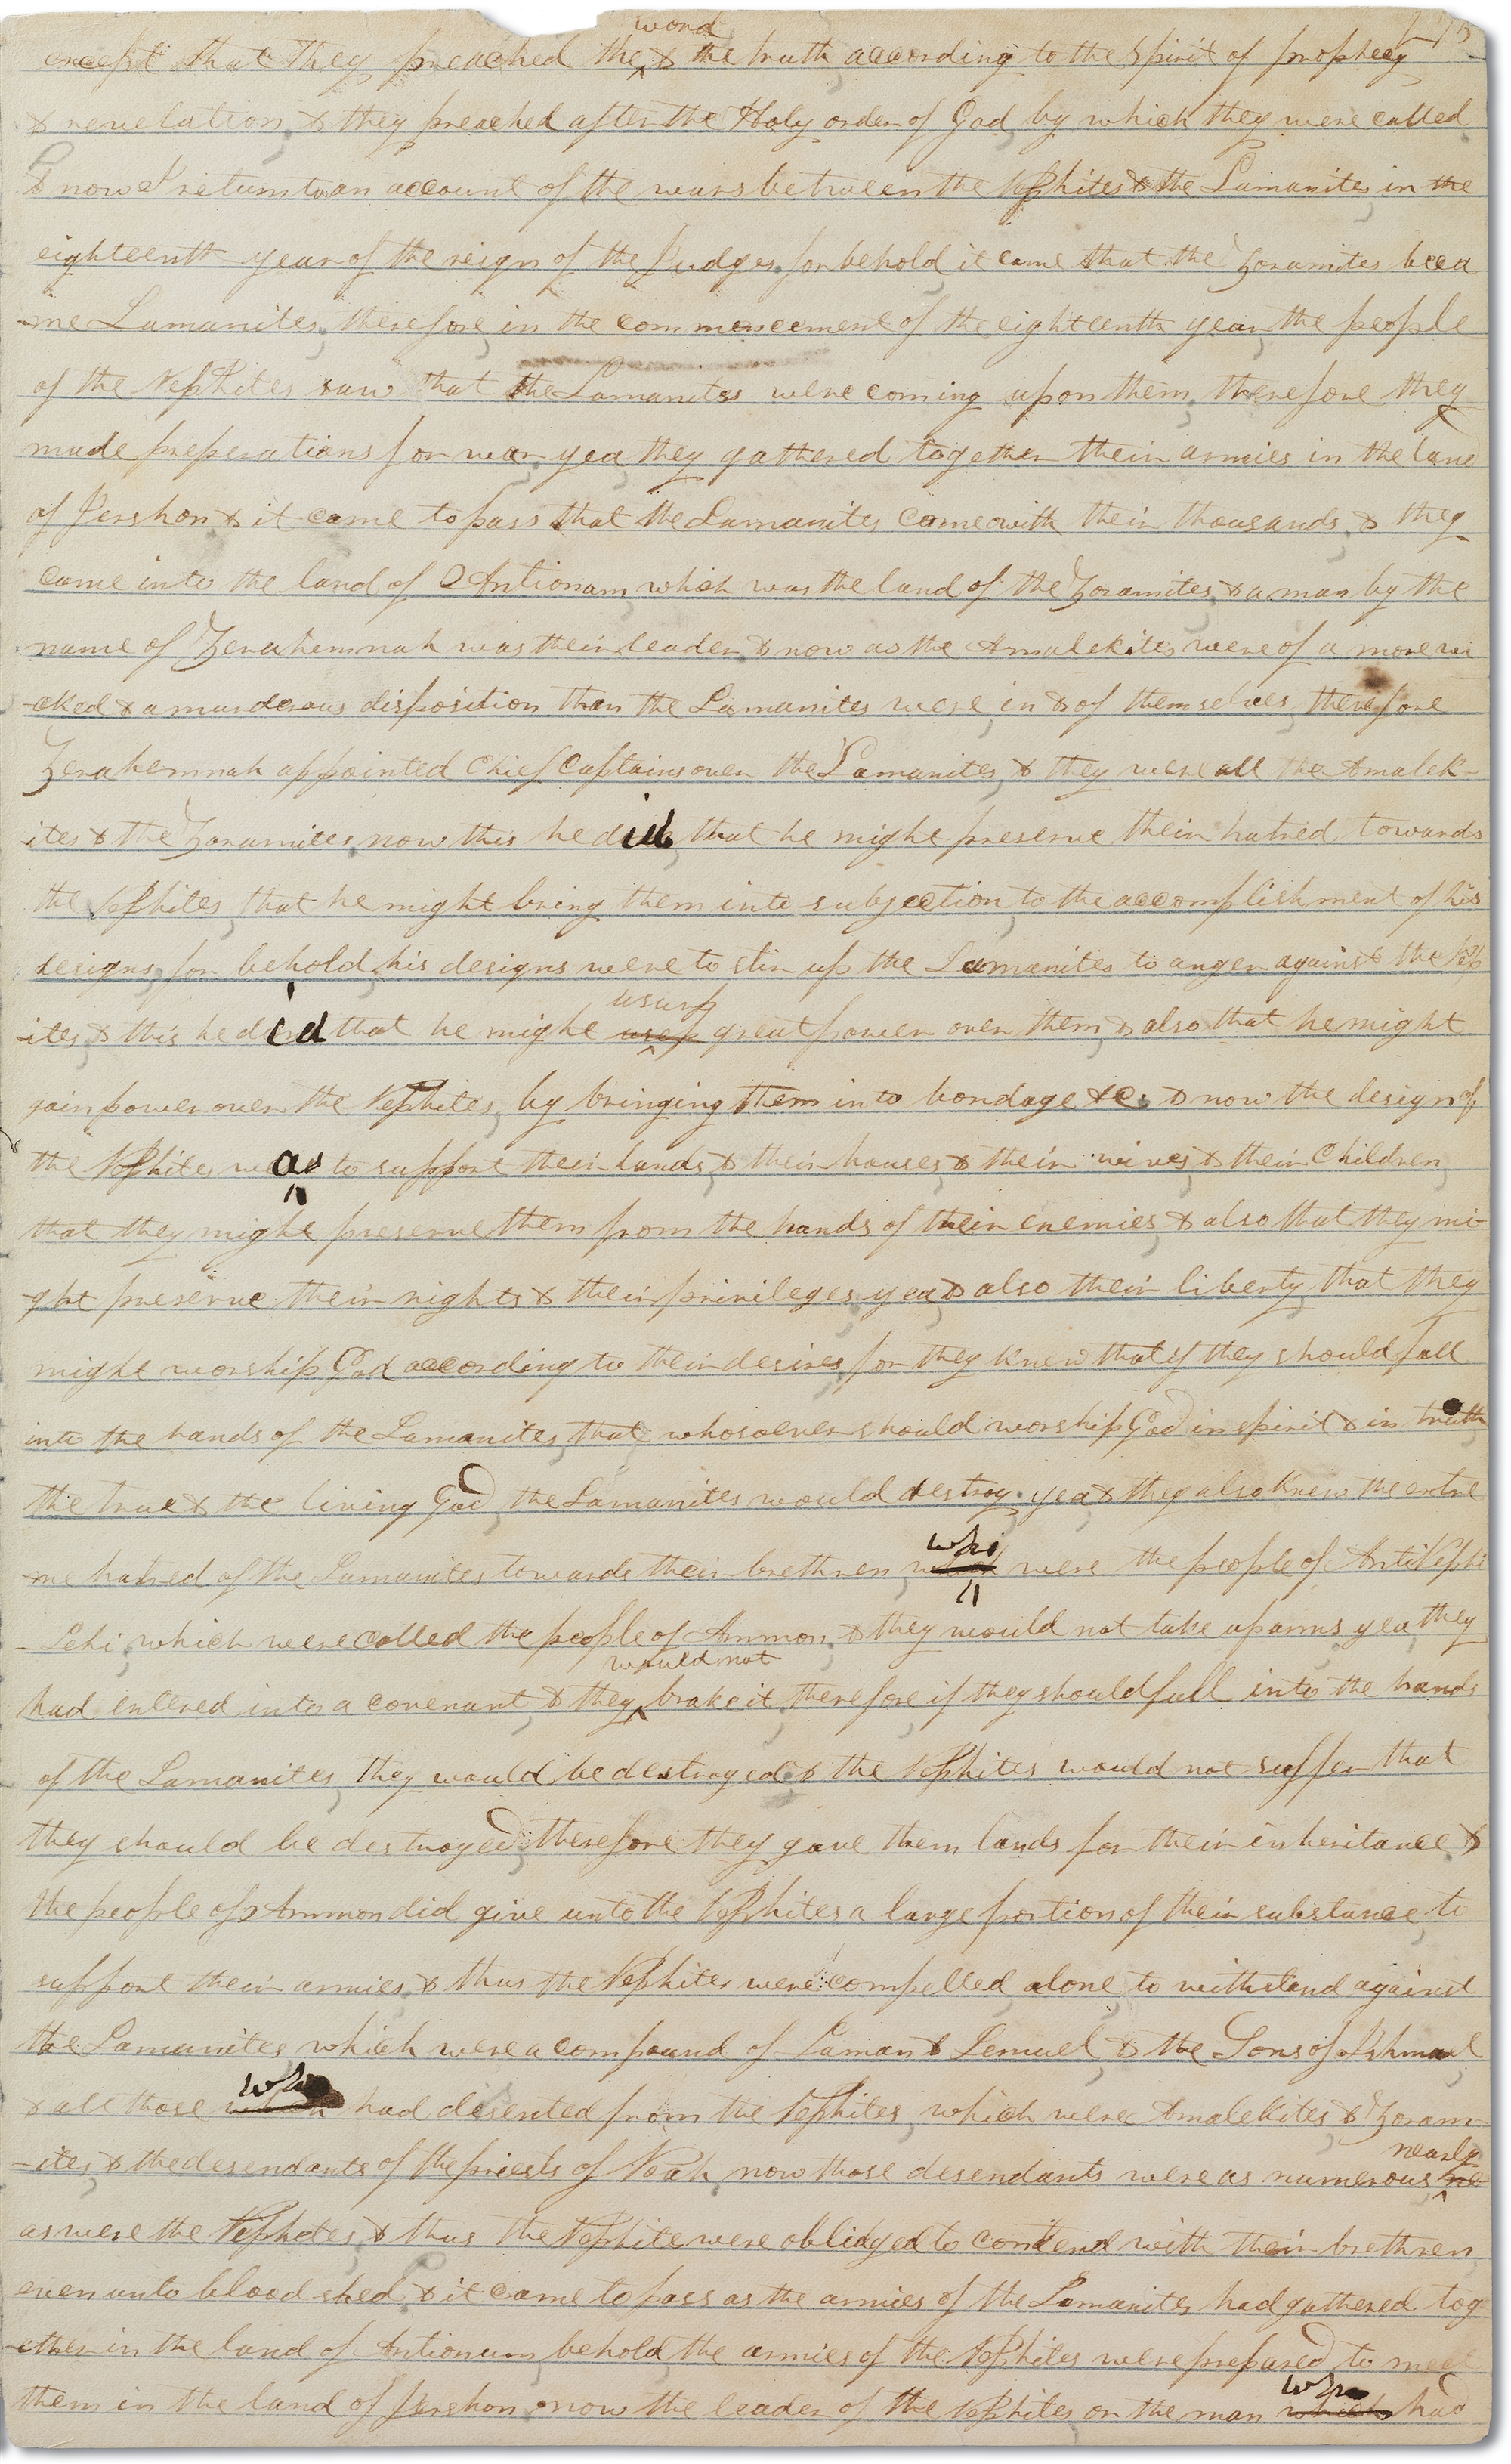 word 275
except that they preached the & the truth according to the spirit of prophecy
& revelation, & they preached after the Holy order of God, by which they were called
& now I return to an account of the wars between the Nephites & the Lamanites, in the
eighteenth year of the reign of the Judges, for behold it came that the Zoramites beca
-me Lamanites, therefore, in the commencement of the eighteenth year, the people
of the Nephites saw that the Lamanites were coming upon them, therefore they
made preperations for war, yea they gathered together their armies in the land
of Jershon, & it came to pass that the Lamanites came with their thousands, & they
came into the land of Antionum, which was the land of the Zoramites, & a man by the
name of Zerahemnah was their leader, & now as the Amalekites were of a more wi
-cked & a murderous disposition than the Lamanites were, in & of themselves, therefore
Zerahemnah appointed Chief Captains over the Lamanites, & they were all the Amalek-
ites & the Zoramites, now this he did, that he might preserve their hatred towards
the Nephites, that he might bring them into subjection, to the accomplishment of his
designs, for behold, his designs were to stir up the Lamanites to anger against the Neph
usurp
-ites, & this he did that he might usep great power over them, & also that he might
gain power over the Nephites, by bringing them into bondage &c. & now the design of
the Nephites was to support their lands, & their houses, & their wives, & their Children,
that they might preserve them from the hands of their enemies, & also that they mi-
-ght preserve their rights & their privileges, yea, & also their liberty, that they
might worship God according to their desires, for they knew that if they should fall
into the hands of the Lamanites, that whosoever should worship God in spirit & in truth
the true & the living God, the Lamanites would destroy. yea, & they also knew the extre
who
-me hatred of the Lamanites towards their brethren which were the people of AntiNephi
-Lehi, which were called the people of Ammon, & they would not take up arms, yea, they
would not
had entered into a covenant, & they brake it, therefore if they should fall into the hands
of the Lamanites, they would be destroyed, & the Nephites would not suffer that
they should be destroyed, therefore they gave them lands for their inheritance &
the people of Ammon did give unto the Nephites a large portion of their substance, to
support their armies, & thus the Nephites were compelled alone, to withstand against
the Lamanites which were a compound of Laman & Lemuel, & the Sons of Ishmael,
who
& all those which had desented from the Nephites, which were Amalekites, & Zoram-
-ites, & the desendants of the priests of Noah, now those desendants were as numerous ne
nearly
as were the Nephites, & thus the Nephite were oblidged to contend with their brethren,
even unto blood shed, & it came to pass as the armies of the Lamanites had gathered tog
-ether in the land of Antionum, behold, the armies of the Nephites were prepared to meet
who
them in the land of Jershon, now the leader of the Nephites or the man which had